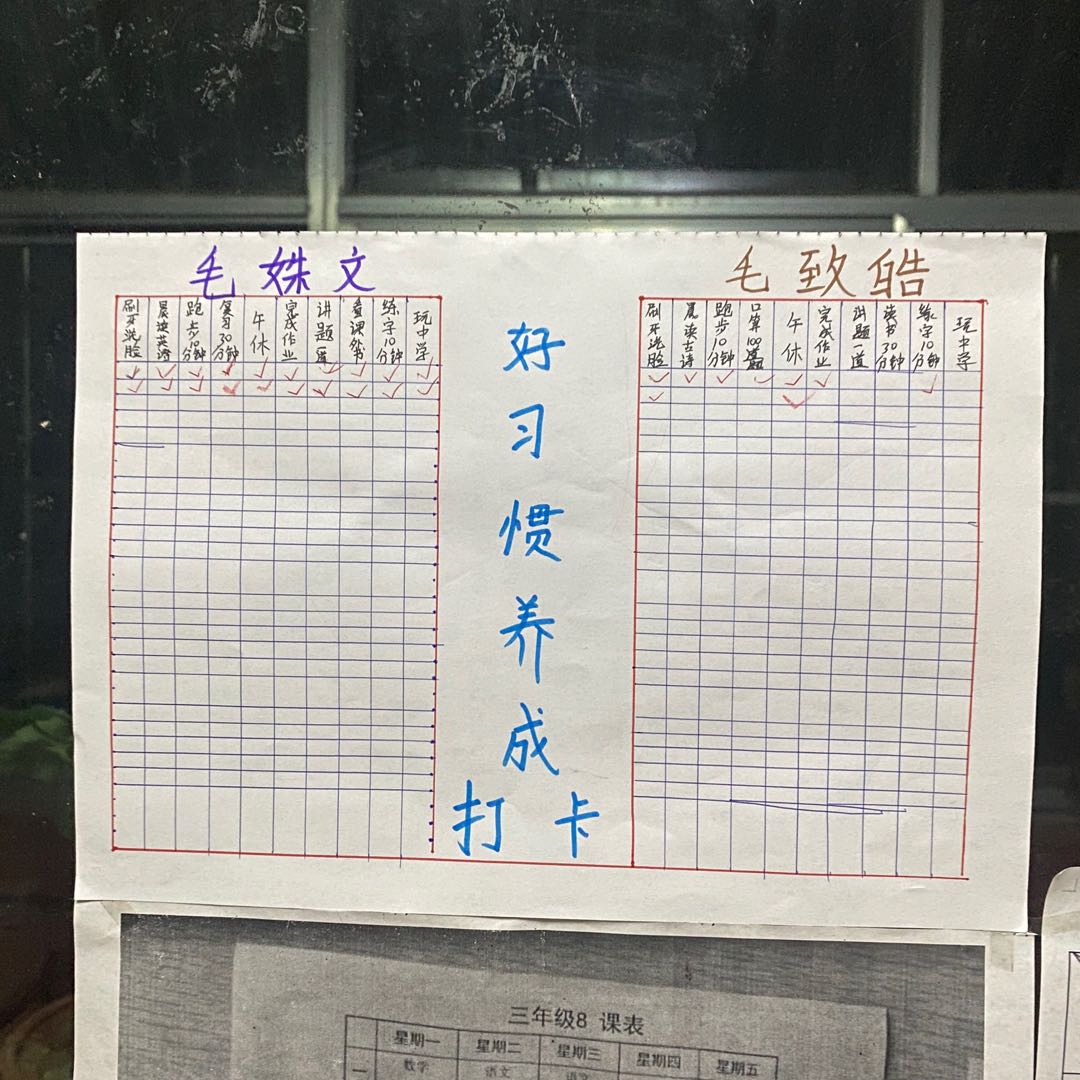 毛姝文
毛致皓
刷牙洗脸
晨读英语
跑步10分钟
复习30分钟
午休
完成作业
讲题一道
看课外书
练字10分钟
玩中学
好习惯养成打卡
刷牙洗脸
晨读古诗
跑步10分钟
口算100道
午休
完成作业
讲题一道
读书30分钟
练字10分钟
玩中学
三年级8 课表
星期一 星期二 星期三 星期四 星期五
一 数学 语文 语文